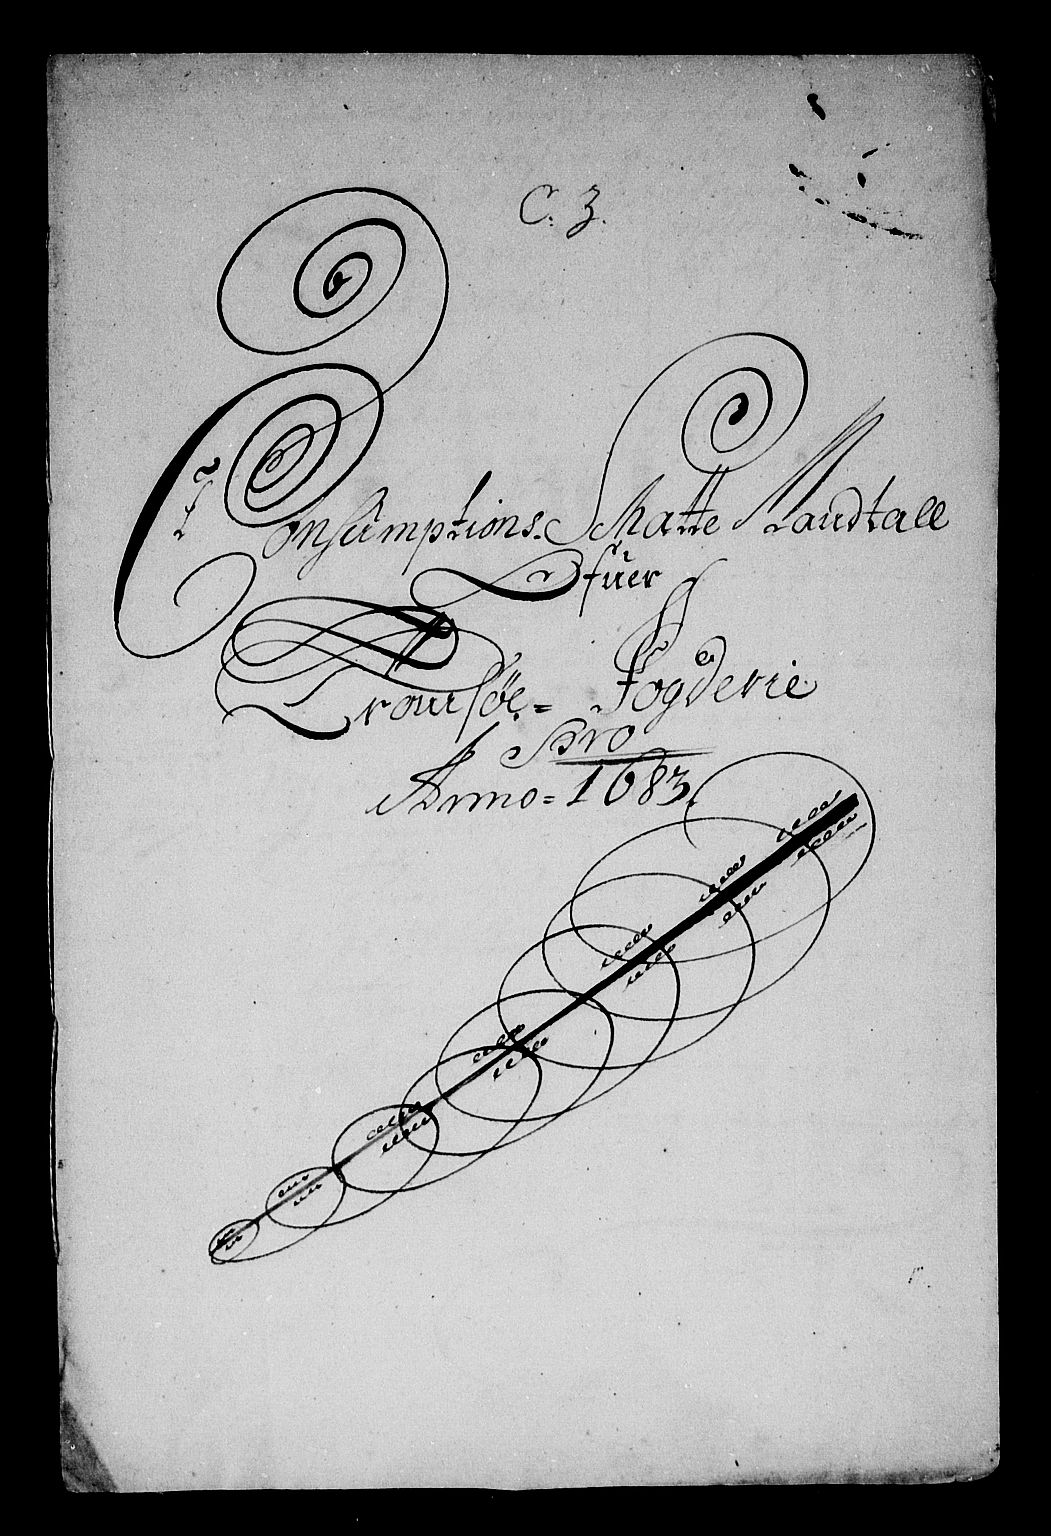 C. 3.
Consumptions Schatte Mandtall
Ofuer
Tromsøe= Fogderie
Pro
Anno= 1683.